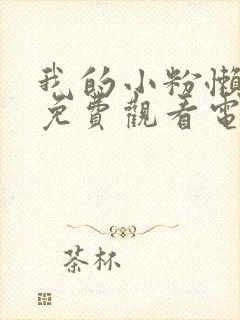 我的小粉懒
免費觀看電
茶杯